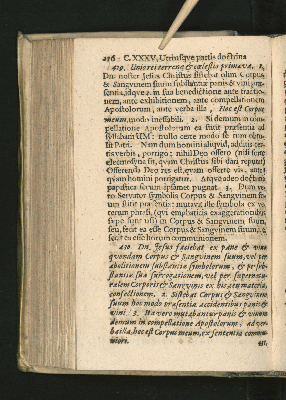 216 C. XXXV. Utriusque partis doctrina
419. Unio rei terrenæ & cœlestis primæva. 1.
Dn. noster Jesus Christus sistebat olim Corpus
& Sanguinem suum substantiæ panis & vini præ-
sentia, idque in sua benedictione ante tractio-
nem, ante exhibitionem, ante compellationem
Apostolorum, ante verba illa, Hoc est Corpus
meum, modo ineffabili. 2. Si demum in com-
pellatione Apostolorum ea fuit præsentia ad
syllabam UM: nullo certe modo se tum ob-
tulit Patri. Nam dum homini aliquid, additis cer-
tis verbis, porrigo; nihil Deo offero (nisi forte
eleemosyna sit, quam Christus sibi dari reputat)
Offerenda Deo res est, quam offerre vis, ante-
quam homini porrigatur. Atque adeo doctrina
papistica secum ipsamet pugnat. 3. Dum ve-
ro Servator symbolis Corpus & Sanguinem su-
um sistit præsentia: mutavit ille symbola ex ve-
terum phrasi, (qui emphaticis exaggerationibus
sæpe sunt usi) in Corpus & Sanguinem suum,
seu, fecit ea esse Corpus & Sanguinem suum, &
fecit ea esse horum communionem.
420. Dn. Jesus faciebat ex pane & vino
quondam Corpus & Sanguinem suum, vel per
abolitionem substantiæ symbolorum, & per sub-
stantiæ suæ surrogationem, vel per supernatu-
ralem Corporis & Sanguinis ex hisce materia,
confectionem. 2. Sistebat Corpus & Sanguinem
suum hoc modo præsentia accidentibus panis &
vini. 3. Hæ vero mutabantur panis & vinum
demum in compellatione Apostolorum, ad ver-
ba illa, hoc est Corpus meum, ex sententia commu-
niori.
421.